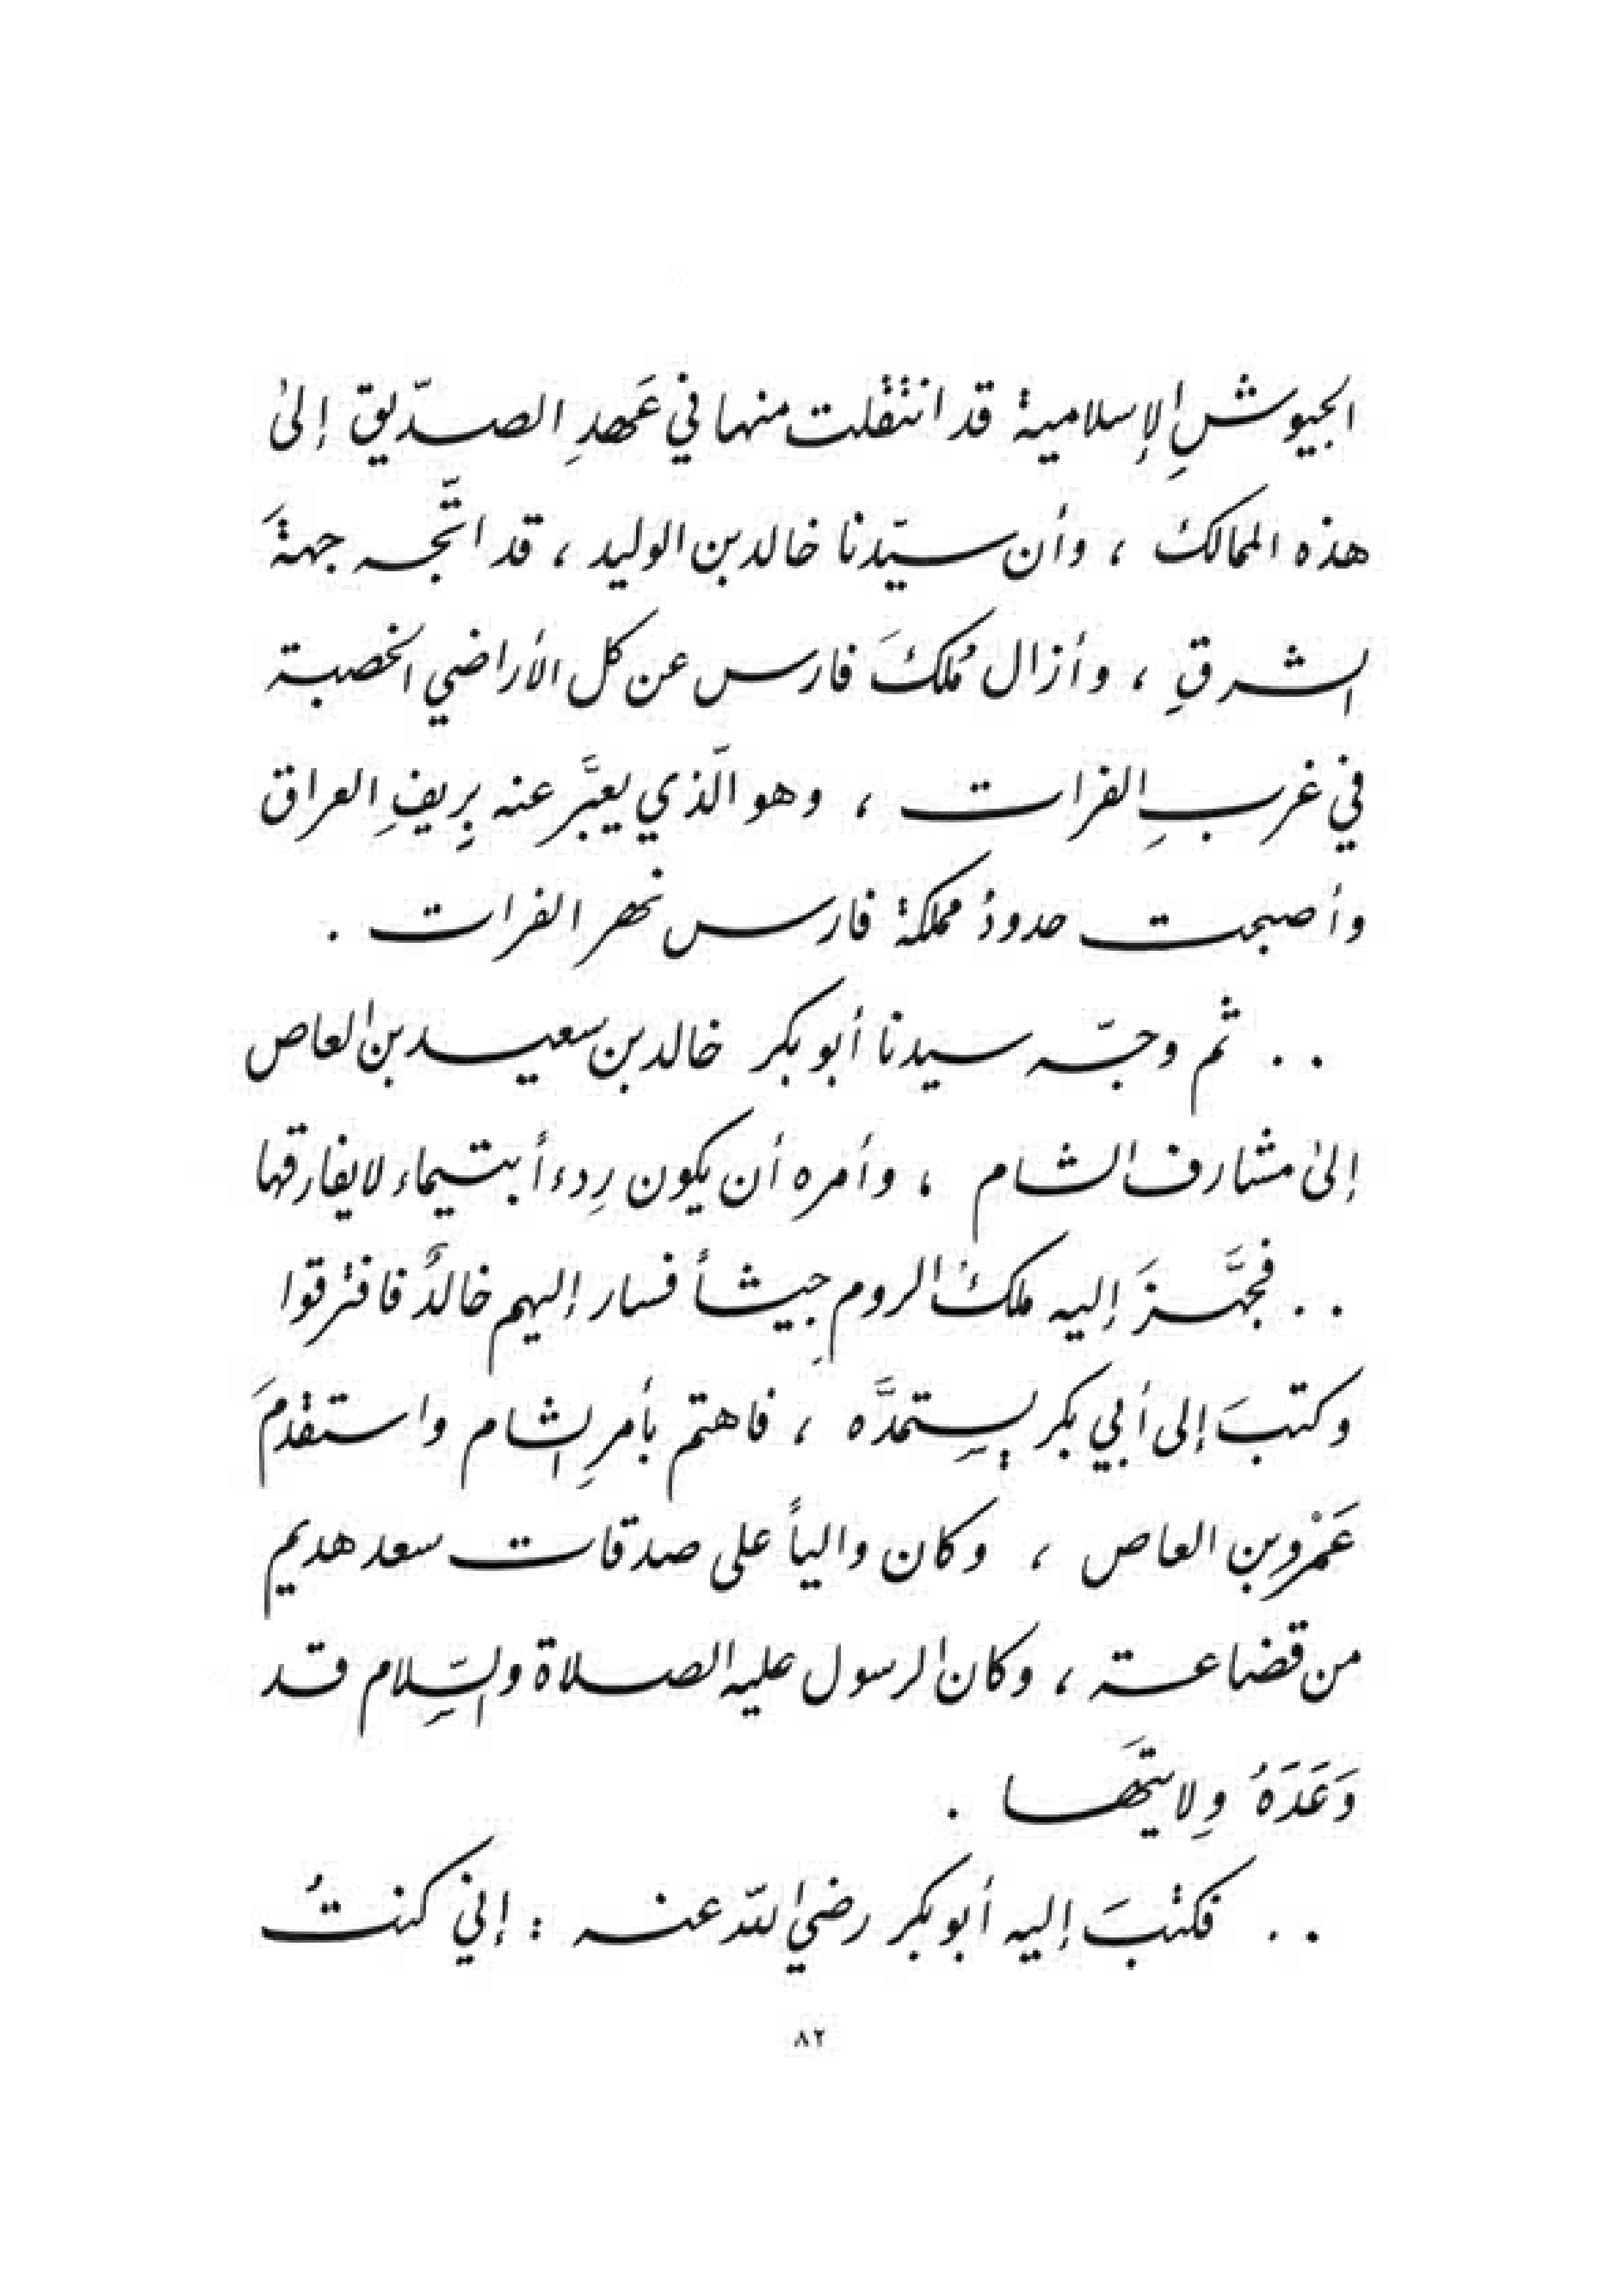 الجيوشِ الإسلامية قد انتقلت منها في عَهدِ الصدّيق إلى
هذه الممالك ، وأن سيّدنا خالد بن الوليد ، قد اتّجه جهةَ
الشرقِ ، وأزال مُلكَ فارس عن كل الأراضي الخصبة
في غربِ الفرات ، وهو الّذي يعبَّر عنه بِريفِ العراق
وأصبحت حدودُ مملكة فارس نهر الفرات .
. . ثم وجّه سيدنا أبو بكر خالد بن سعيد بن العاص
إلى مشارف الشام ، وأمره أن يكون رِدءاً بتيماء لا يفارقها
. . فجهَّزَ إليه ملكُ الروم جيشاً فسار إليهم خالدٌ فافترقوا
وكتبَ إلى أبي بكر يستمدَّه ، فاهتم بأمرِ الشام واستقدمَ
عَمْرو بن العاص ، وكان والياً على صدقات سعد هديم
من قضاعة ، وكان الرسول عليه الصلاة والسّلام قد
وَعَدَهُ وِلايتَها .
. . فكتبَ إليه أبو بكر رضي الله عنه : إني كنتُ
٨٢